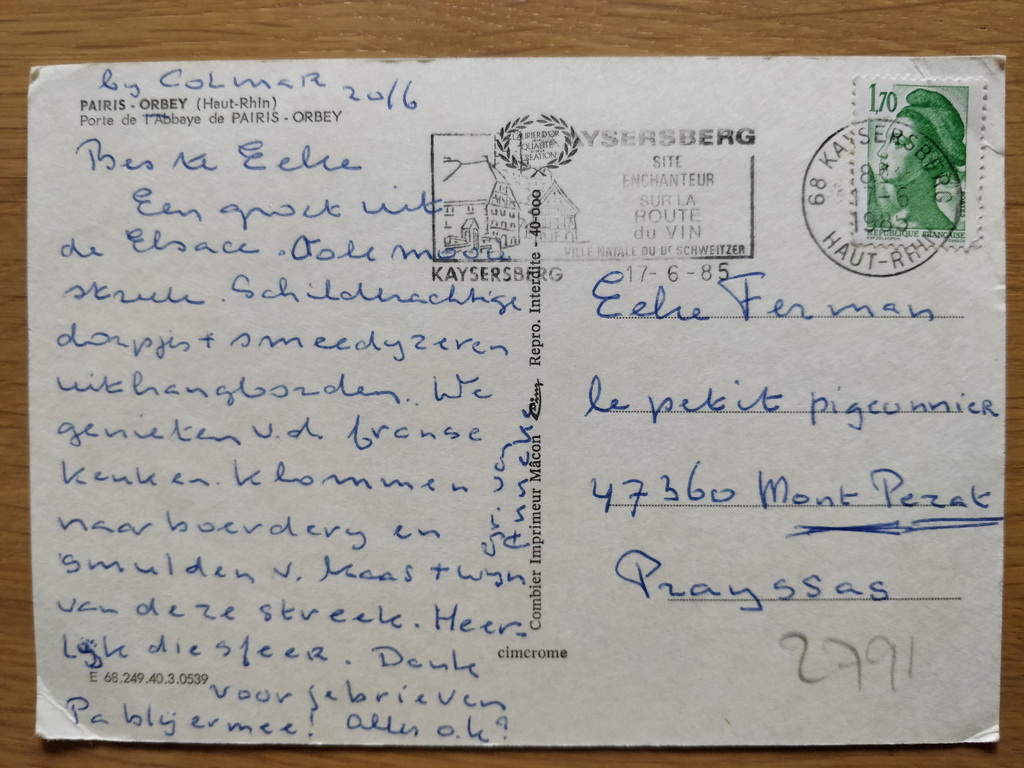 by COLMAR 20/6
PAIRIS - ORBEY (Haut-Rhin)
Porte de l'Abbaye de PAIRIS - ORBEY
Beste Eelke
Een groet uit
de Elsace. Ook mooie
streek. Schilderachtige
dorpjes + smeedyzeren
uithangborden. We
genieten v.d. franse
keuken. Klommen
naar boerdery en
smulden v. kaas + wyn
van deze streek. Heer-
lijk die sfeer. Dank
voor je brieven
Pa blij ermee! Alles o.k?
gr. Jan
+ Anneke
E 68.249.40.3.0539
Combier Imprimeur Mâcon Repro. Interdite - 40-000
cimcrome
LAURIER D'OR
QUALITÉ
CRÉATION
KAYSERSBERG
SITE
ENCHANTEUR
SUR LA
ROUTE
du VIN
VILLE NATALE DU Dr SCHWEITZER
KAYSERSBERG 17-6-85
68 KAYSERSBERG
1985
HAUT-RHIN
1,70
REPUBLIQUE FRANCAISE
Eelke Ferman
le petit pigeonnier
47360 Mont Pezat
Prayssas
2791